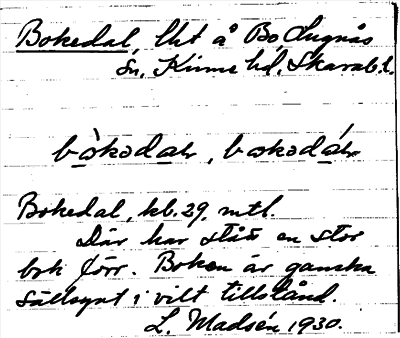 Bokedal, lht å Bodugnäs
sn, Kinne hd, Skarab. l.
bòkədaɫ, bokədáɫ
Bokedal, kb. 29, mtl.
Där har stått en stor
bok förr. Boken är ganska
sällsynt i vilt tillstånd.
L. Madsén 1930.